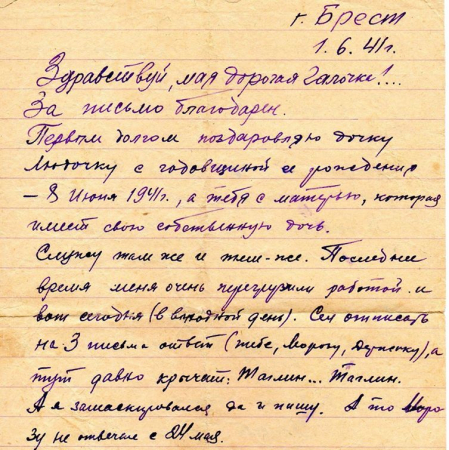 г. Брест
1. 6. 41 г.
Здравствуй, мая дорогая Галочка!...
За письмо благодарен.
Первым долгом поздаровляю дочку
Людочку с годовщиной ее рождения
– 8 Июня 1941г., а тебя с матерью, которая
имеет свою собственную дочь.
Служу там же и тем-же. Последнее
время меня очень перегрузили работой и
вот сегодня (в выходной день). Сел отписать
на 3 письма ответ (тебе, Морозу,), а
тут давно кричат: Таглин... Таглин.
А я замаскировался да и пишу. А то Моро-
зу не отвечаю с 24 мая.